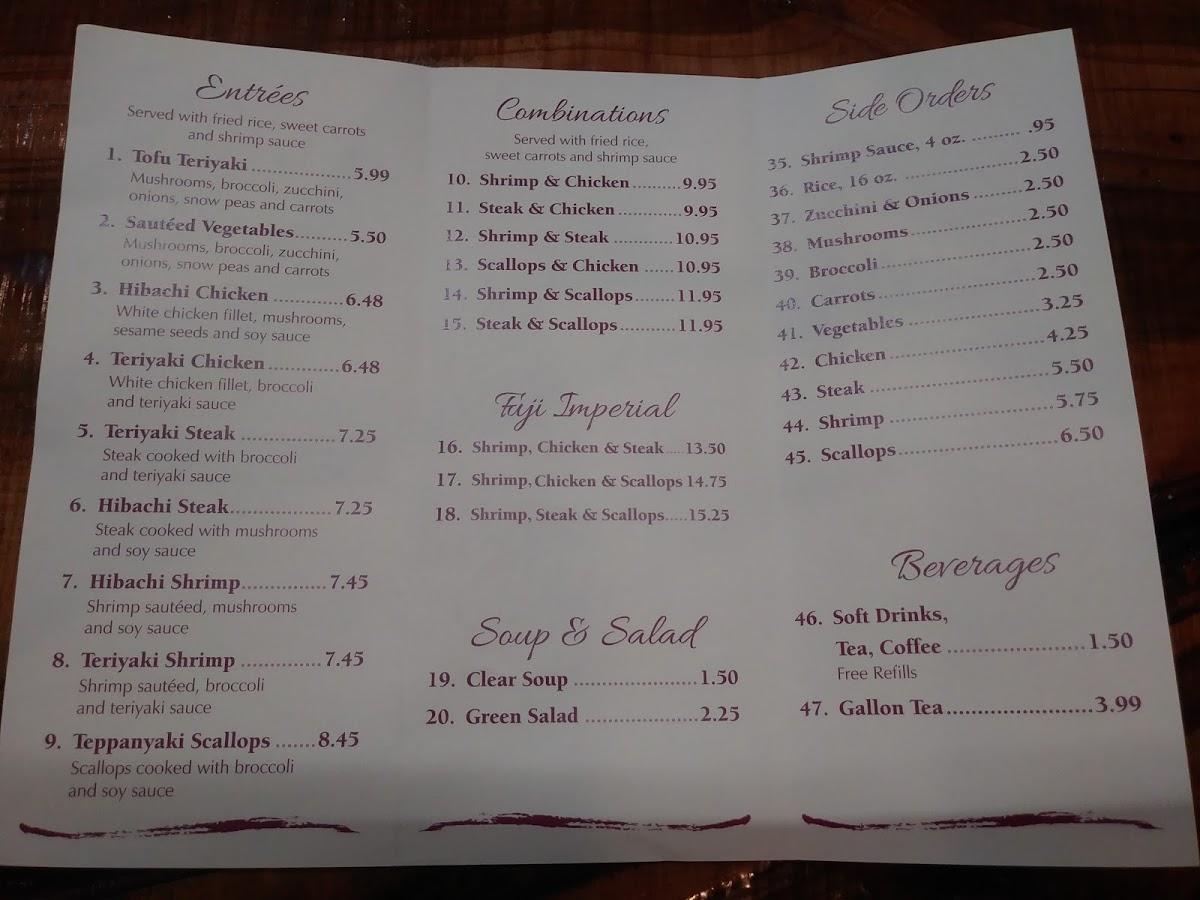 Entrées
Served with fried rice, sweet carrots
and shrimp sauce
1. Tofu Teriyaki ..................5.99
Mushrooms, broccoli, zucchini,
onions, snow peas and carrots
2. Sautéed Vegetables.........5.50
Mushrooms, broccoli, zucchini,
onions, snow peas and carrots
3. Hibachi Chicken ............6.48
White chicken fillet, mushrooms,
sesame seeds and soy sauce
4. Teriyaki Chicken ............6.48
White chicken fillet, broccoli
and teriyaki sauce
5. Teriyaki Steak ................7.25
Steak cooked with broccoli
and teriyaki sauce
6. Hibachi Steak.................7.25
Steak cooked with mushrooms
and soy sauce
7. Hibachi Shrimp..............7.45
Shrimp sautéed, mushrooms
and soy sauce
8. Teriyaki Shrimp .............7.45
Shrimp sautéed, broccoli
and teriyaki sauce
9. Teppanyaki Scallops .......8.45
Scallops cooked with broccoli
and soy sauce
Combinations
Served with fried rice,
sweet carrots and shrimp sauce
10. Shrimp & Chicken..........9.95
11. Steak & Chicken............9.95
12. Shrimp & Steak ............10.95
13. Scallops & Chicken ......10.95
14. Shrimp & Scallops........11.95
15. Steak & Scallops...........11.95
Fuji Imperial
16. Shrimp, Chicken & Steak....13.50
17. Shrimp, Chicken & Scallops 14.75
18. Shrimp, Steak & Scallops.....15.25
Soup & Salad
19. Clear Soup .....................1.50
20. Green Salad ...................2.25
Side Orders
35. Shrimp Sauce, 4 oz. ......... .95
36. Rice, 16 oz. ....................2.50
37. Zucchini & Onions .........2.50
38. Mushrooms....................2.50
39. Broccoli.........................2.50
40. Carrots..........................2.50
41. Vegetables .....................3.25
42. Chicken .........................4.25
43. Steak .............................5.50
44. Shrimp ..........................5.75
45. Scallops.........................6.50
Beverages
46. Soft Drinks,
Tea, Coffee .......................1.50
Free Refills
47. Gallon Tea........................3.99